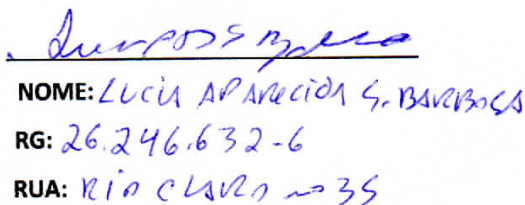 NOME: LUCIA APARECIDA S. BARBOSA
RG: 26.246.632-6
RUA: RIO CLARO nº 35